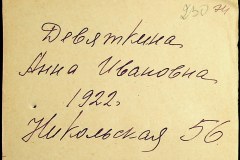 230 74
Девяткина
Анна Ивановна
. 1922.
Никольская 56